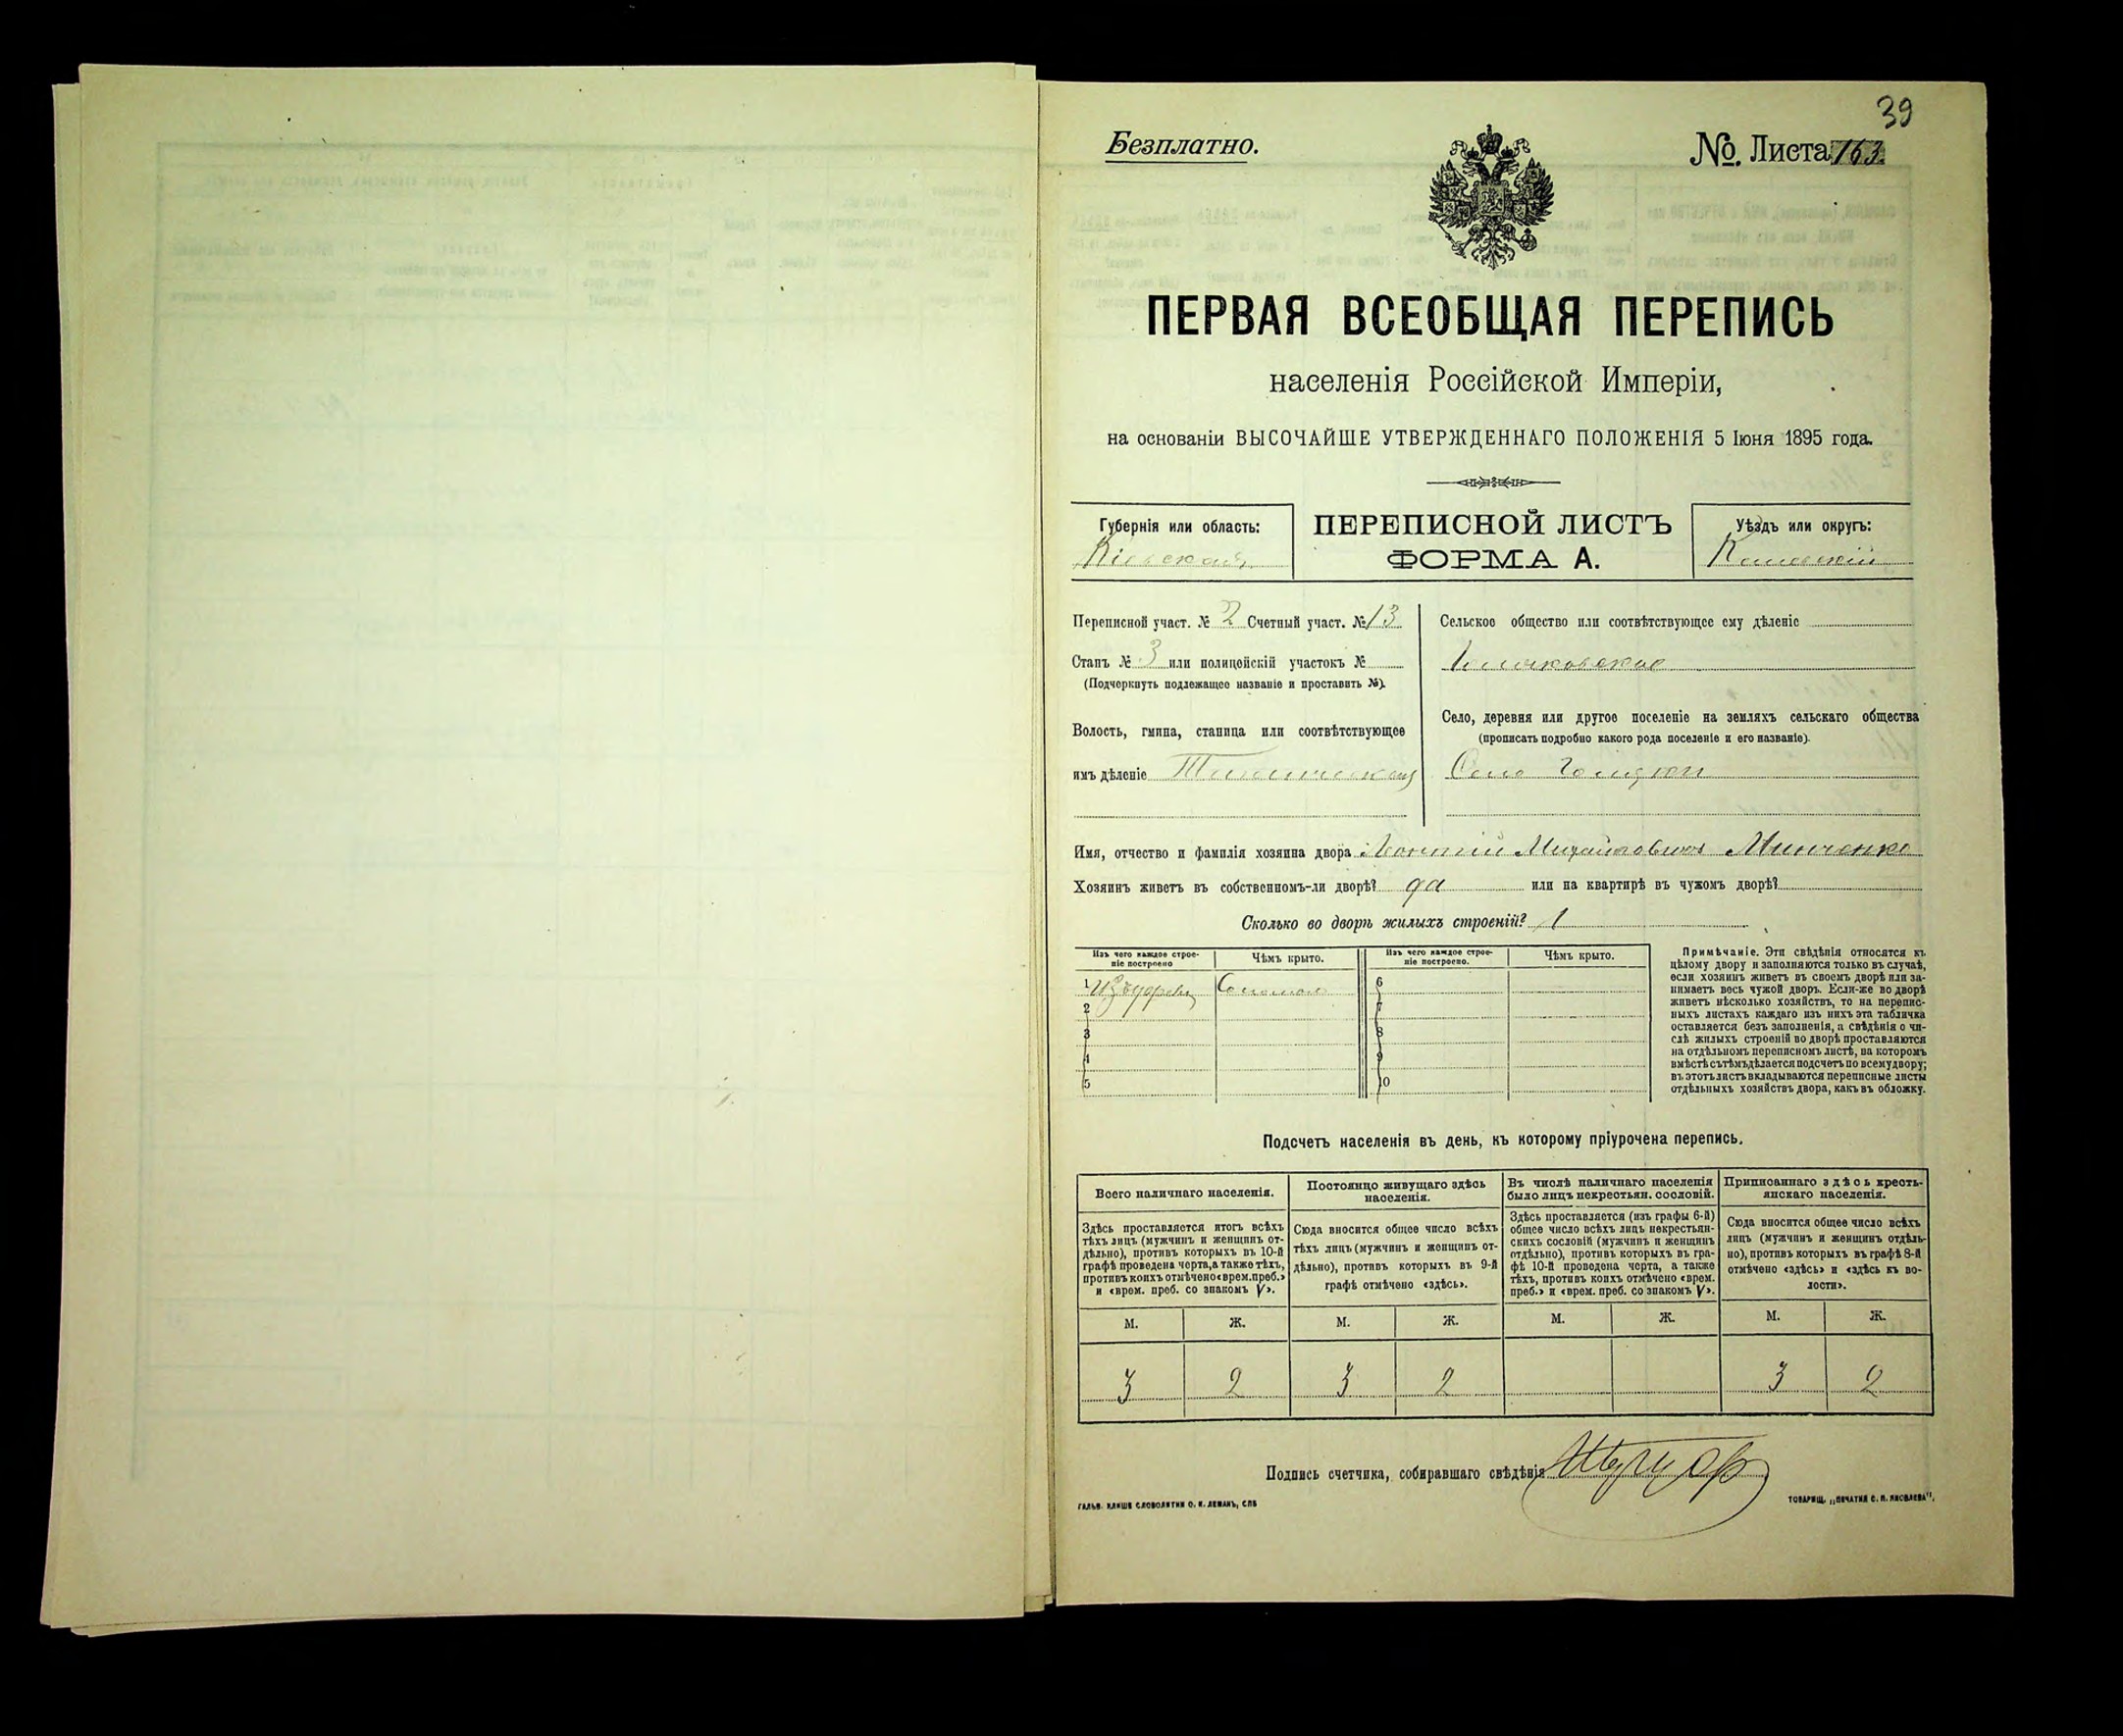 39
Безплатно.
№. Листа 163.
ПЕРВАЯ ВСЕОБЩАЯ ПЕРЕПИСЬ
населенія Россійской Имперіи,
на основаніи ВЫСОЧАЙШЕ УТВЕРЖДЕННАГО ПОЛОЖЕНІЯ 5 Іюня 1895 года.
Губернія или область:
Кіевская
ПЕРЕПИСНОЙ ЛИСТЪ
ФОРМА А.
Уѣздъ или округъ:
Каневскій
Переписной участ. № 2 Счетный участ. № 13
Станъ № 3 или полицейскій участокъ №
(Подчеркнуть подлежащее названіе и проставить №).
Волость, гмина, станица или соотвѣтствующее
имъ дѣленіе
Сельское общество или соотвѣтствующее ему дѣленіе
Село, деревня или другое поселеніе на земляхъ сельскаго общества
(прописать подробно какого рода поселеніе и его названіе).
Село
Имя, отчество и фамилія хозяина двора Леонтій Михайловичъ Минченко
Хозяинъ живетъ въ собственномъ-ли дворѣ? да или на квартирѣ въ чужомъ дворѣ?
Сколько во дворѣ жилыхъ строеній? 1
Изъ чего каждое строе-
ніе построено
Чѣмъ крыто.
Изъ чего каждое строе-
ніе построено.
Чѣмъ крыто.
1 Изъ дерева Соломою 6
2 7
3 8
4 9
5 10
Примѣчаніе. Эти свѣдѣнія относятся къ
цѣлому двору и заполняются только въ случаѣ,
если хозяинъ живетъ въ своемъ дворѣ или за-
нимаетъ весь чужой дворъ. Если-же во дворѣ
живетъ нѣсколько хозяйствъ, то на перепис-
ныхъ листахъ каждаго изъ нихъ эта табличка
оставляется безъ заполненія, а свѣдѣнія о чи-
слѣ жилыхъ строеній во дворѣ проставляются
на отдѣльномъ переписномъ листѣ, на которомъ
вмѣстѣ съ тѣмъ дѣлается подсчетъ по всему двору;
въ этотъ листъ вкладываются переписные листы
отдѣльныхъ хозяйствъ двора, какъ въ обложку.
Подсчетъ населенія въ день, къ которому пріурочена перепись.
Всего наличнаго населенія.
Здѣсь проставляется итогъ всѣхъ
тѣхъ лицъ (мужчинъ и женщинъ от-
дѣльно), противъ которыхъ въ 10-й
графѣ проведена черта, а также тѣхъ,
противъ коихъ отмѣчено «врем. преб.»
и «врем. преб. со знакомъ V».
Постоянно живущаго здѣсь
населенія.
Сюда вносится общее число всѣхъ
тѣхъ лицъ (мужчинъ и женщинъ от-
дѣльно), противъ которыхъ въ 9-й
графѣ отмѣчено «здѣсь».
Въ числѣ наличнаго населенія
было лицъ некрестьян. сословій.
Здѣсь проставляется (изъ графы 6-й)
общее число всѣхъ лицъ некрестьян-
скихъ сословій (мужчинъ и женщинъ
отдѣльно), противъ которыхъ въ гра-
фѣ 10-й проведена черта, а также
тѣхъ, противъ коихъ отмѣчено «врем.
преб.» и «врем. преб. со знакомъ V».
Приписаннаго здѣсь кресть-
янскаго населенія.
Сюда вносится общее число всѣхъ
лицъ (мужчинъ и женщинъ отдѣль-
но), противъ которыхъ въ графѣ 8-й
отмѣчено «здѣсь» и «здѣсь къ во-
лости».
М. Ж. М. Ж. М. Ж. М. Ж.
3 2 3 2 3 2
Подпись счетчика, собиравшаго свѣдѣнія
ГАЛЬВ. КЛИШЕ СЛОВОЛИТНИ О. И. ЛЕМАНЪ, СПБ
ТОВАРИЩ. „ПЕЧАТНЯ С. П. ЯКОВЛЕВА“.